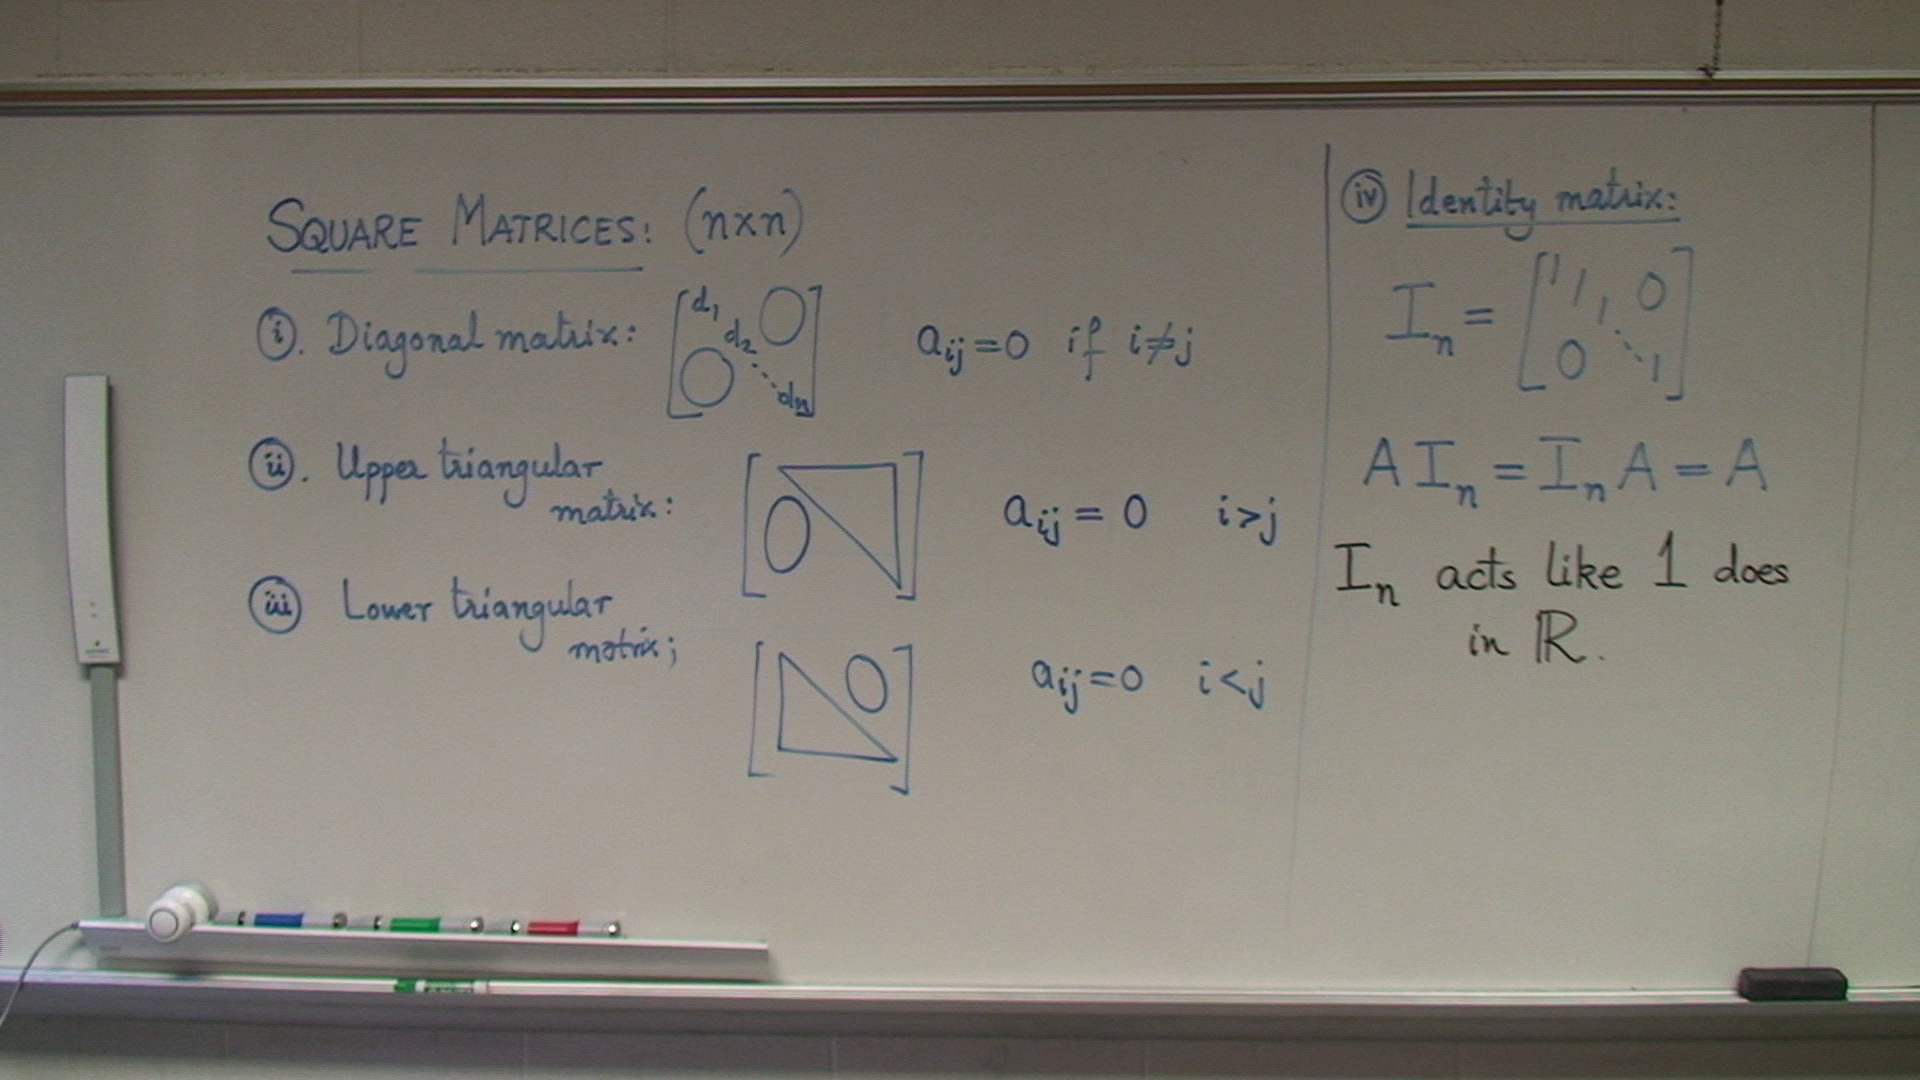 SQUARE MATRICES: (n×n)
i. Diagonal matrix: [d1 d2 dn 0 0] aij=0 if i≠j
ii. Upper triangular
matrix: [0] aij = 0 i>j
iii Lower triangular
matrix; [0] aij=0 i<j
iv Identity matrix:
In = [1 1 1 0 0 1]
A In = In A = A
In acts like 1 does
in ℝ.